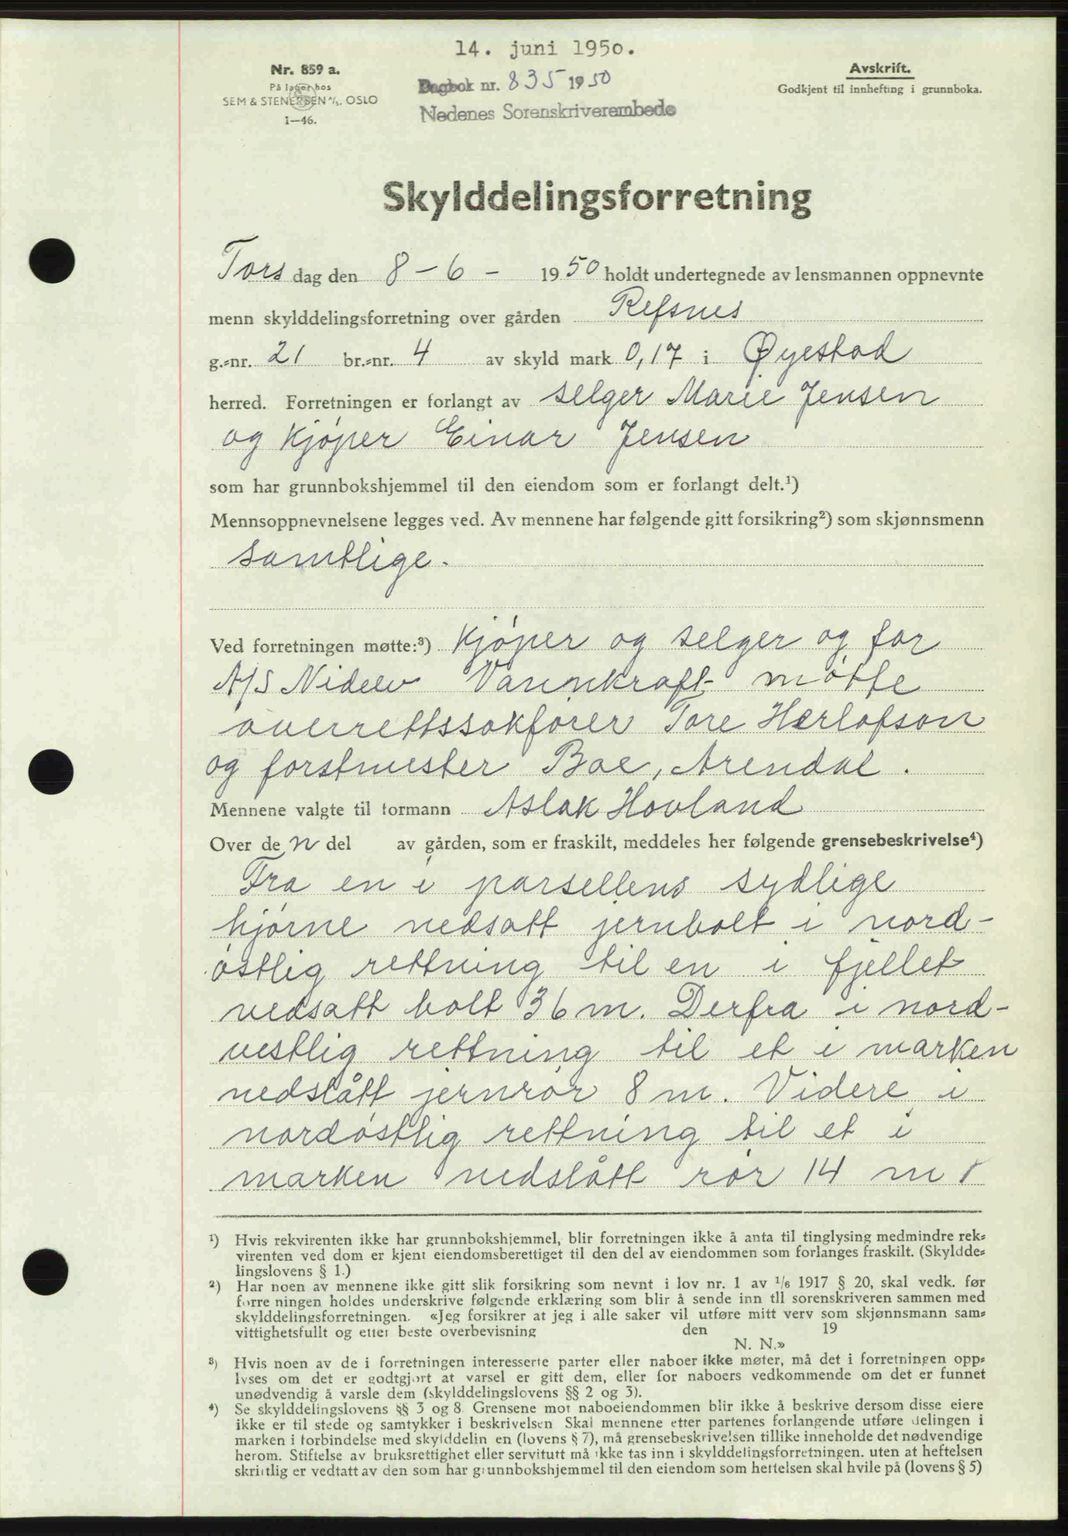 14. juni 1950.
Nr. 859 a.
På lager hos
SEM & STENERSEN A/S. OSLO
1—46.
Dagbok nr. 835 1950
Nedenes Sorenskriverembede
Avskrift.
Godkjent til innhefting i grunnboka.
Skylddelingsforretning
Torsdag den 8-6- 1950 holdt undertegnede av lensmannen oppnevnte
menn skylddelingsforretning over gården Refsnes
g.-nr. 21 br.-nr. 4 av skyld mark 0,17 i Øyestad
herred. Forretningen er forlangt av selger Marie Jensen
og kjøper Einar Jensen
som har grunnbokshjemmel til den eiendom som er forlangt delt.¹)
Mennsoppnevnelsene legges ved. Av mennene har følgende gitt forsikring²) som skjønnsmenn
samtlige.
Ved forretningen møtte:³) kjøper og selger og for
A/S Nidelv Vannkraft møtte
overrettssakfører Tore Herlofson
og forstmester Boe, Arendal.
Mennene valgte til formann Aslak Hovland
Over den del av gården, som er fraskilt, meddeles her følgende grensebeskrivelse⁴)
Fra en i parsellens sydlige
hjørne nedsatt jernbolt i nord-
østlig rettning til en i fjellet
nedsatt bolt 36 m. Derfra i nord-
vestlig rettning til et i marken
nedslått jernrør 8 m. Videre i
nordøstlig rettning til et i
marken nedslått rør 14 m
¹) Hvis rekvirenten ikke har grunnbokshjemmel, blir forretningen ikke å anta til tinglysing medmindre rek-
virenten ved dom er kjent eiendomsberettiget til den del av eiendommen som forlanges fraskilt. (Skyldde-
lingslovens § 1.)
²) Har noen av mennene ikke gitt slik forsikring som nevnt i lov nr. 1 av 1/6 1917 § 20, skal vedk. før
forretningen holdes underskrive følgende erklæring som blir å sende inn til sorenskriveren sammen med
skylddelingsforretningen. «Jeg forsikrer at jeg i alle saker vil utføre mitt verv som skjønnsmann sam-
vittighetsfullt og etter beste overbevisning den 19
N. N.»
³) Hvis noen av de i forretningen interesserte parter eller naboer ikke møter, må det i forretningen opp-
lyses om det er godtgjort at varsel er gitt dem, eller for naboers vedkommende om det er funnet
unødvendig å varsle dem (skylddelingslovens §§ 2 og 3).
⁴) Se skylddelingslovens §§ 3 og 8. Grensene mot naboeiendommen blir ikke å beskrive dersom disse eiere
ikke er til stede og samtykker i beskrivelsen Skal mennene etter partenes forlangende utføre delingen i
marken i forbindelse med skylddelingen (lovens § 7), må grensebeskrivelsen tillike inneholde det nødvendige
herom. Stiftelse av bruksrettighet eller servitutt må ikke tas inn i skylddelingsforretningen. uten at heftelsen
skriftlig er vedtatt av den som har grunnbokshjemmel til den eiendom som heftelsen skal hvile på (lovens § 5)